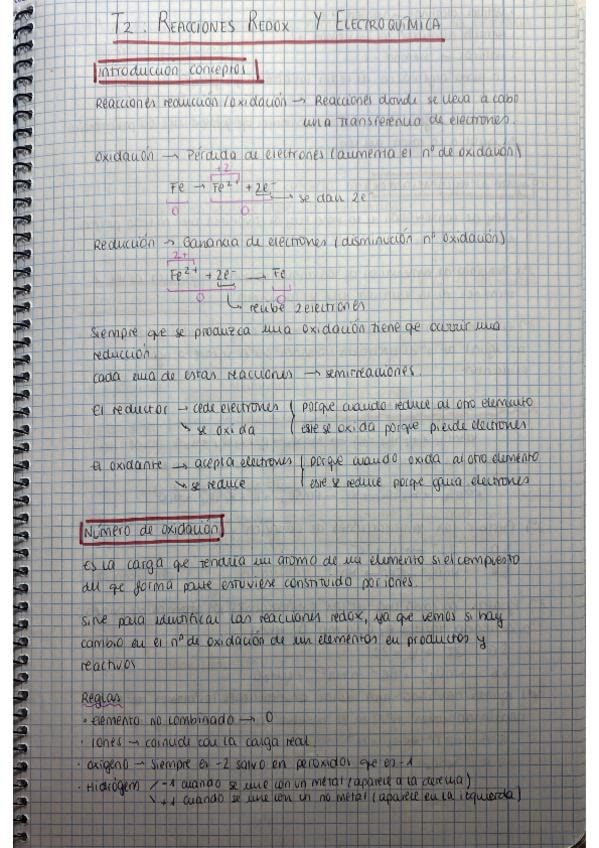 T2. REACCIONES REDOX Y ELECTROQUÍMICA
Introducción conceptos
Reacciones reducción/oxidación → Reacciones donde se lleva a cabo
una transferencia de electrones.
Oxidación → Pérdida de electrones (aumenta el nº de oxidación)
+2
Fe → Fe²⁺ + 2e⁻ → se dan 2e⁻
0 0
Reducción → Ganancia de electrones (disminución nº oxidación)
2+
Fe²⁺ + 2e⁻ → Fe
0 0
↳ recibe 2 electrones
Siempre que se produzca una oxidación tiene qe ocurrir una
reducción.
Cada una de estas reacciones → semirreaciones.
El reductor → cede electrones { porque cuando reduce al otro elemento
↘ se oxida este se oxida porque pierde electrones
El oxidante → acepta electrones { porque cuando oxida al otro elemento
↘ se reduce este se reduce porque gana electrones
Número de oxidación
Es la carga que tendría un átomo de un elemento si el compuesto
del qe forma parte estuviese constituido por iones.
Sirve para identificar las reacciones redox, ya que vemos si hay
cambio en el nº de oxidación de un elementos en productos y
reactivos
Reglas
· elemento no combinado → 0
· Iones → coincide con la carga real
· oxígeno → siempre es -2 salvo en peróxidos que es -1
· Hidrógeno ↗ -1 cuando se une con un metal (aparece a la derecha)
↘ +1 cuando se une con un no metal (aparece en la izquierda)